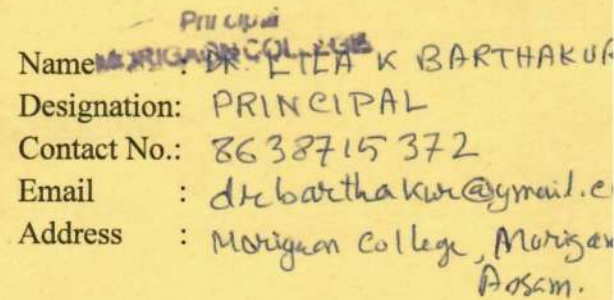 Principal
MORIGAON COLLEGE
Name : DR LILA K BARTHAKUR
Designation: PRINCIPAL
Contact No.: 8638715372
Email : drbarthakur@ymail.c
Address : Morigaon College, Morigaon
Assam.